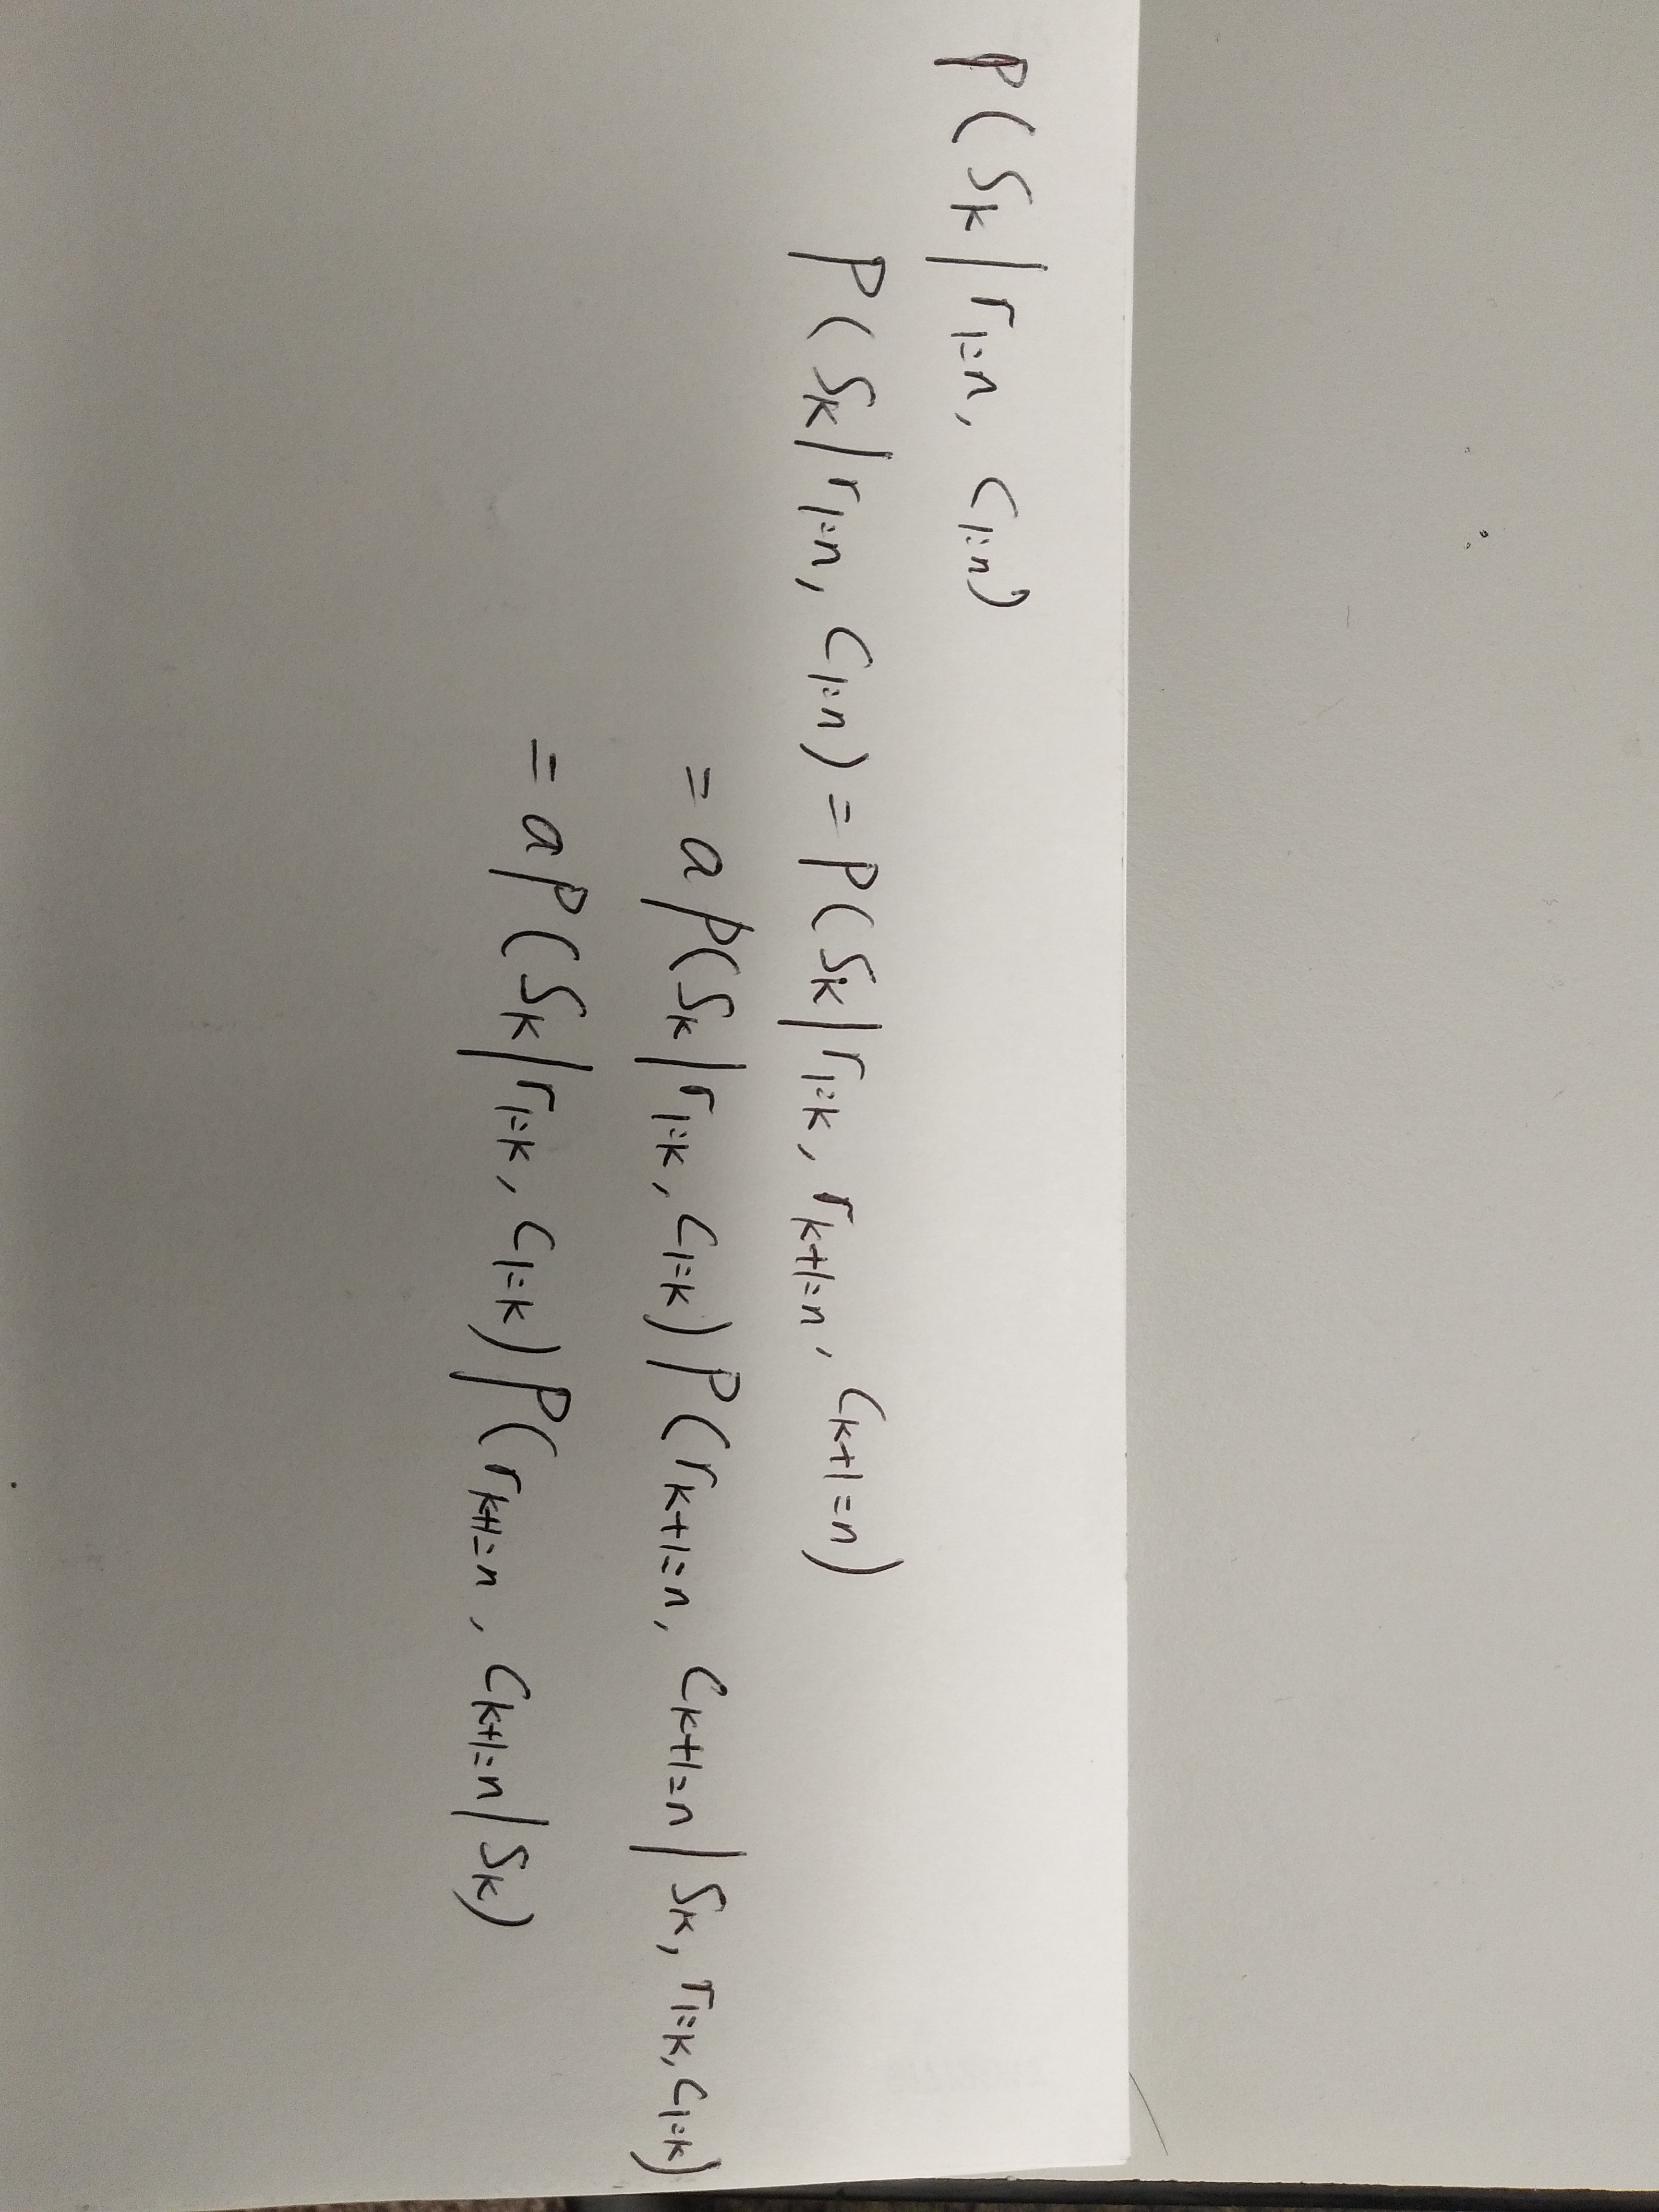 P(S_k|r_{1:n}, c_{1:n})
P(S_k|r_{1:n}, c_{1:n}) = P(S_k|r_{1:k}, r_{k+1:n}, c_{k+1:n})
= a P(S_k|r_{1:k}, c_{1:k}) P(r_{k+1:n}, c_{k+1:n}|S_k, r_{1:k}, c_{1:k})
= a P(S_k|r_{1:k}, c_{1:k}) P(r_{k+1:n}, c_{k+1:n}|S_k)